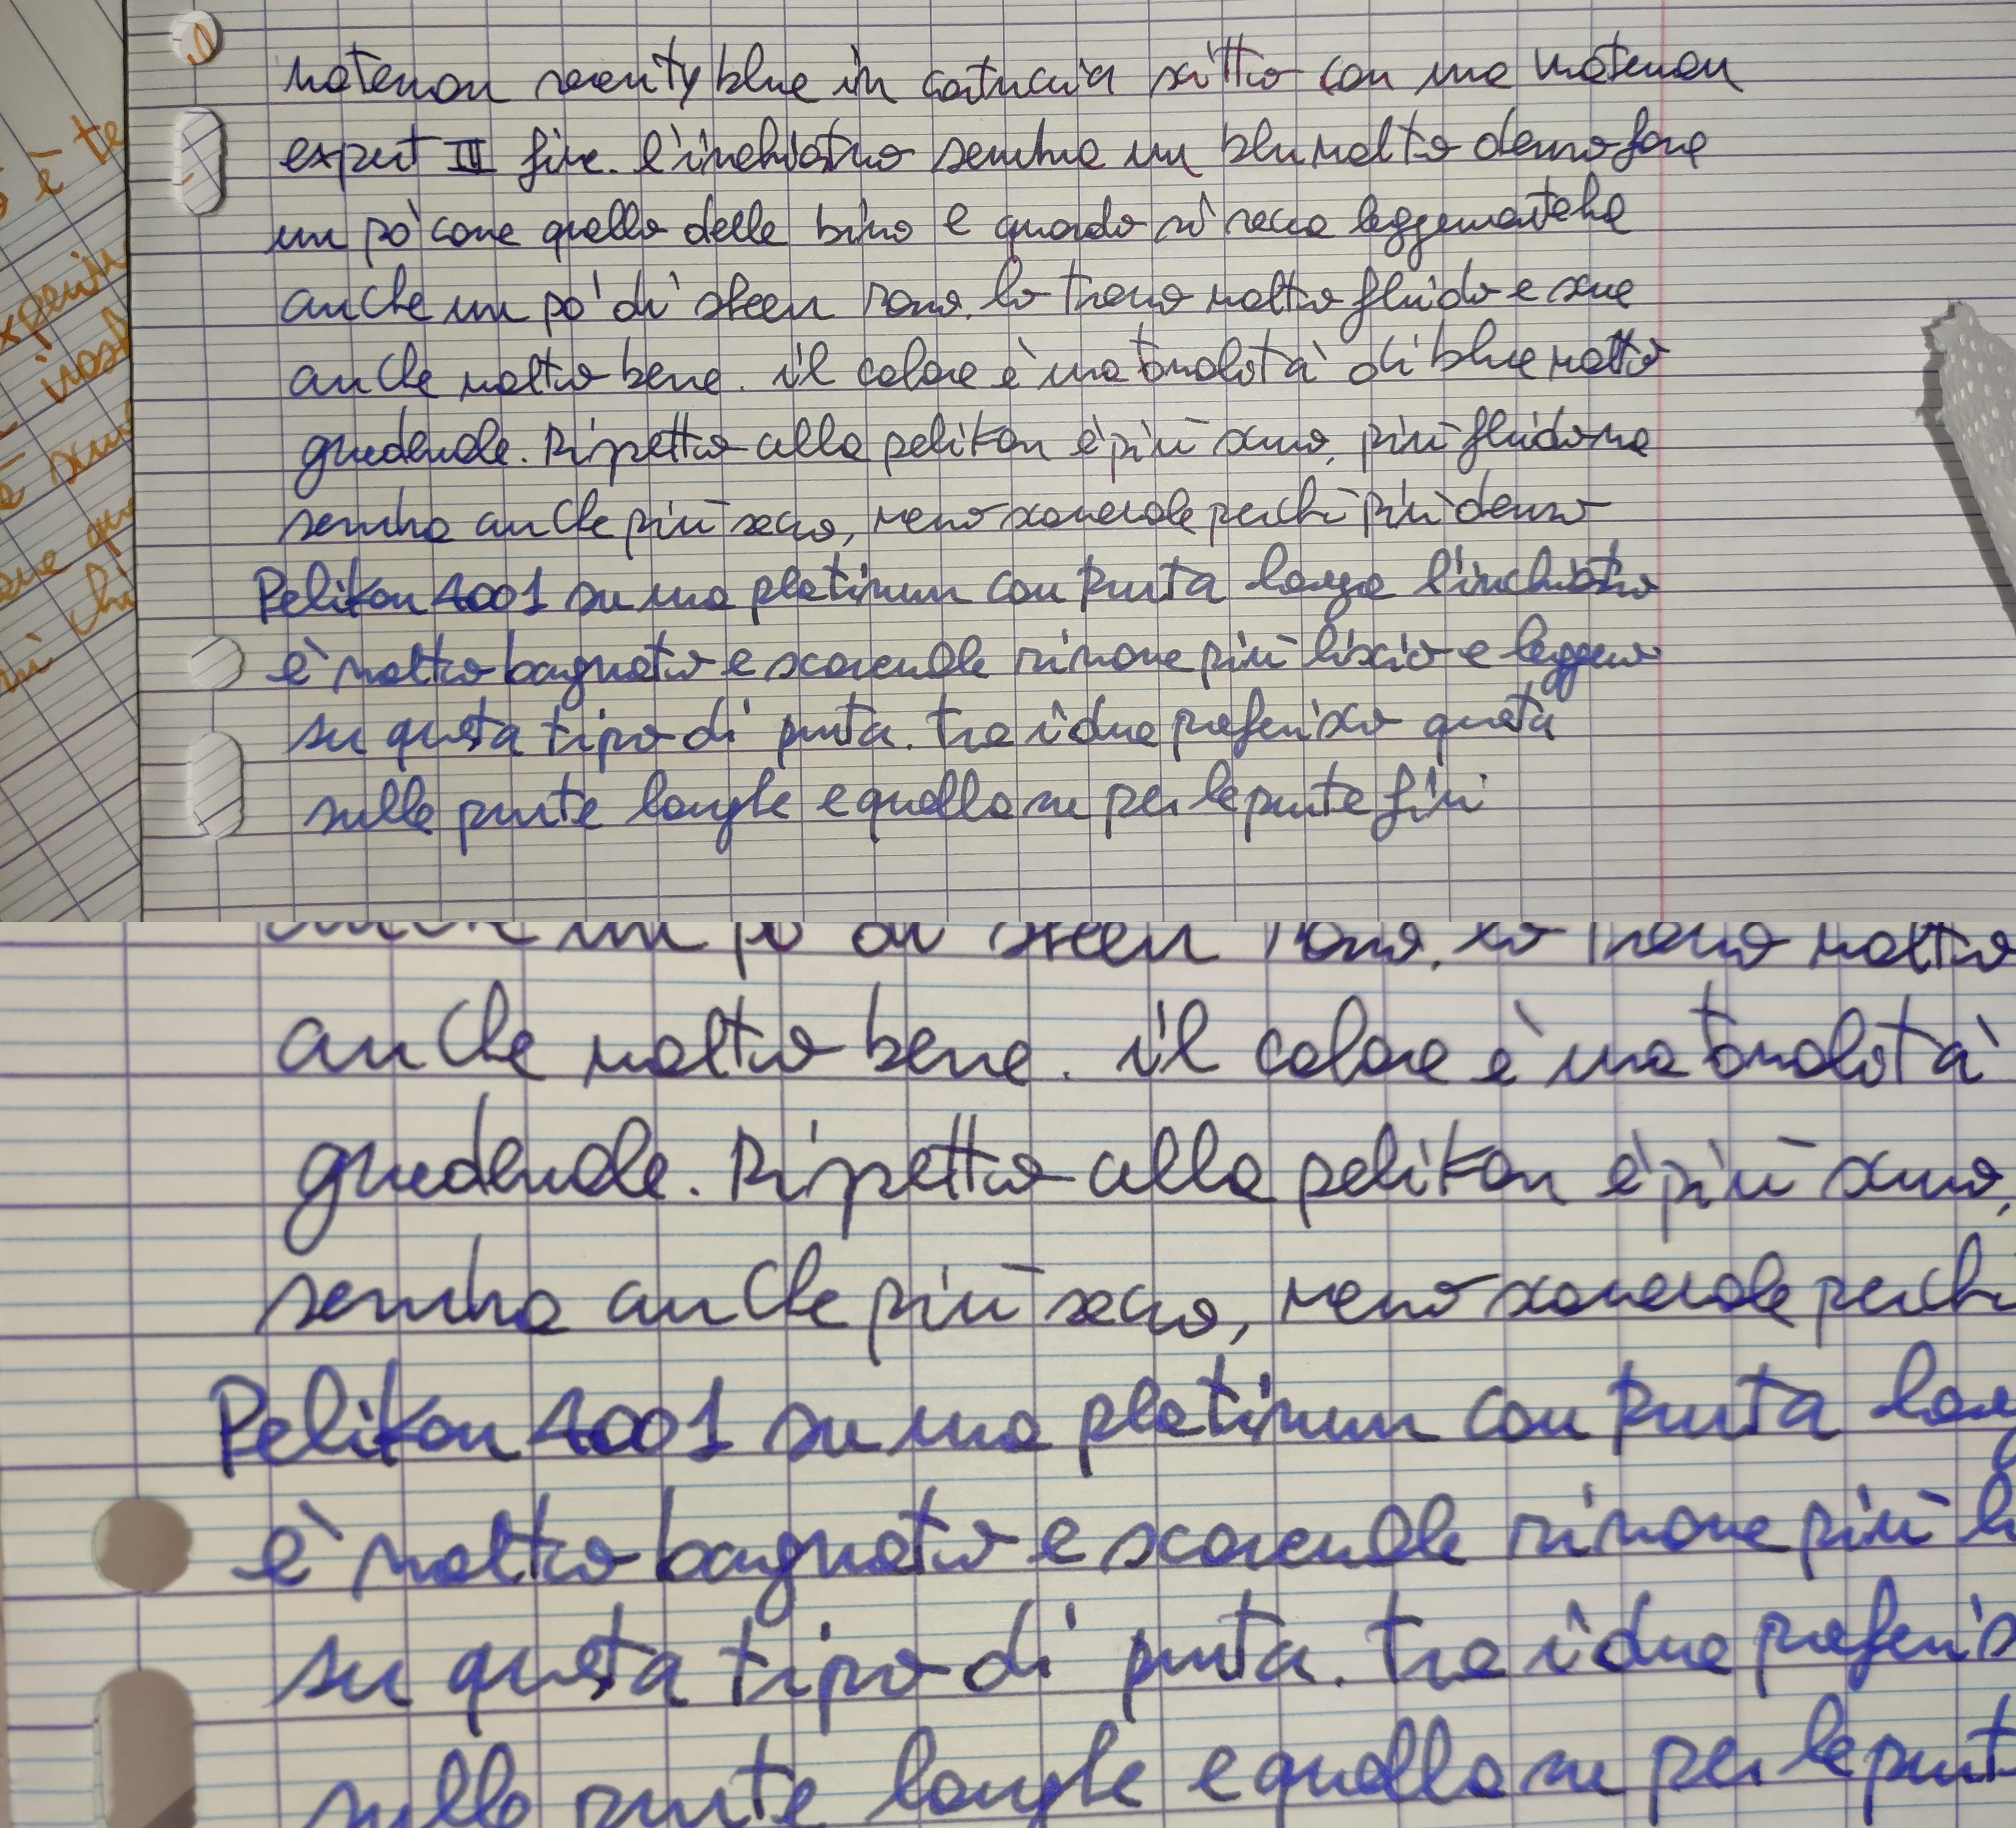 waterman serenity blue in cartuccia scritto con una waterman
expert III fine. l'inchiostro sembra un blu molto denso forse
un po' come quello delle biro e quando si secca leggermente ha
anche un po' di sheen rosso. lo trovo molto fluido e scrive
anche molto bene. il colore è una tonalità di blue molto
gradevole. Rispetto alla pelikan è più scuro, più fluido ma
sembra anche più secco, meno scorrevole perchè più denso
Pelikan 4001 su una platinum con punta larga l'inchiostro
è molto bagnato e scorrevole rimane più liscio e leggero
su questa tipo di punta. tra i due preferisco questa
sulle punte larghe e quella su per le punte fini
è te
anche un po di sheen rosso. lo trovo molto
anche molto bene. il colore è una tonalità
gradevole. Rispetto alla pelikan è più scuro,
sembra anche più secco, meno scorrevole perchè
Pelikan 4001 su una platinum con punta
è molto bagnato e scorrevole rimane più
su questa tipo di punta. tra i due preferis
sulle punte larghe e quella su per le punt